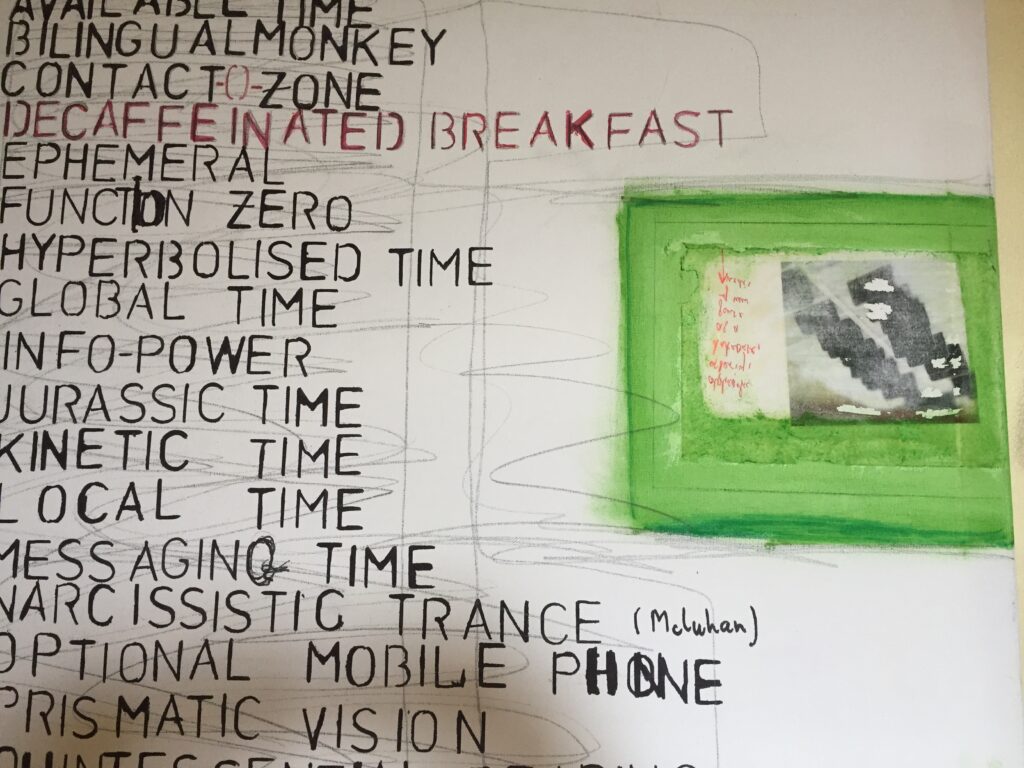 AVAILABLE TIME
BILINGUALMONKEY
CONTACT-O-ZONE
DECAFFEINATED BREAKFAST
EPHEMERAL
FUNCTION ZERO
HYPERBOLISED TIME
GLOBAL TIME
INFO-POWER
JURASSIC TIME
KINETIC TIME
LOCAL TIME
MESSAGING TIME
NARCISSISTIC TRANCE (McLuhan)
OPTIONAL MOBILE PHONE
PRISMATIC VISION
QUINTESSENTIAL